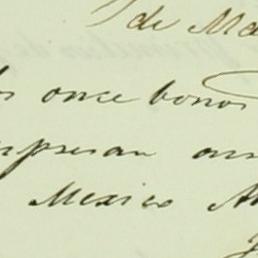 de Ma
os once bonos
xpresan an
Mexico A